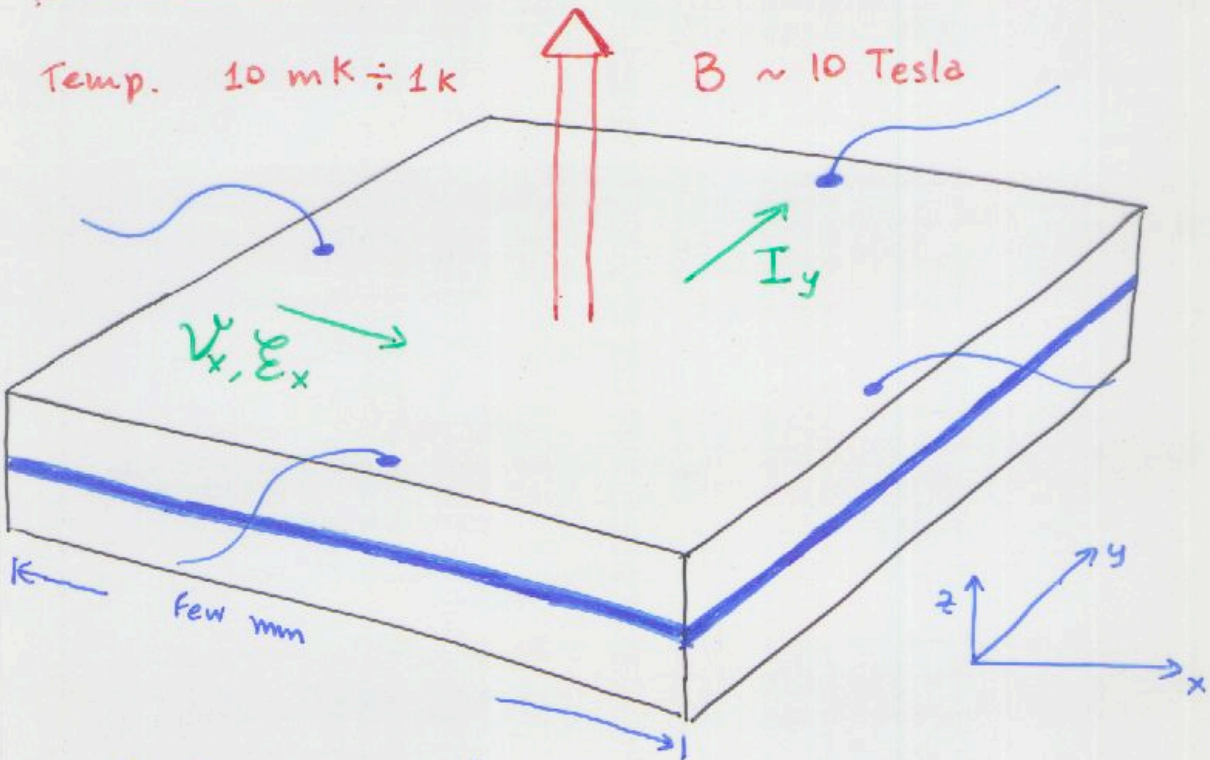 Temp. 10 mK ÷ 1K
B ~ 10 Tesla
I y
V x, ℰ x
few mm
z
y
x